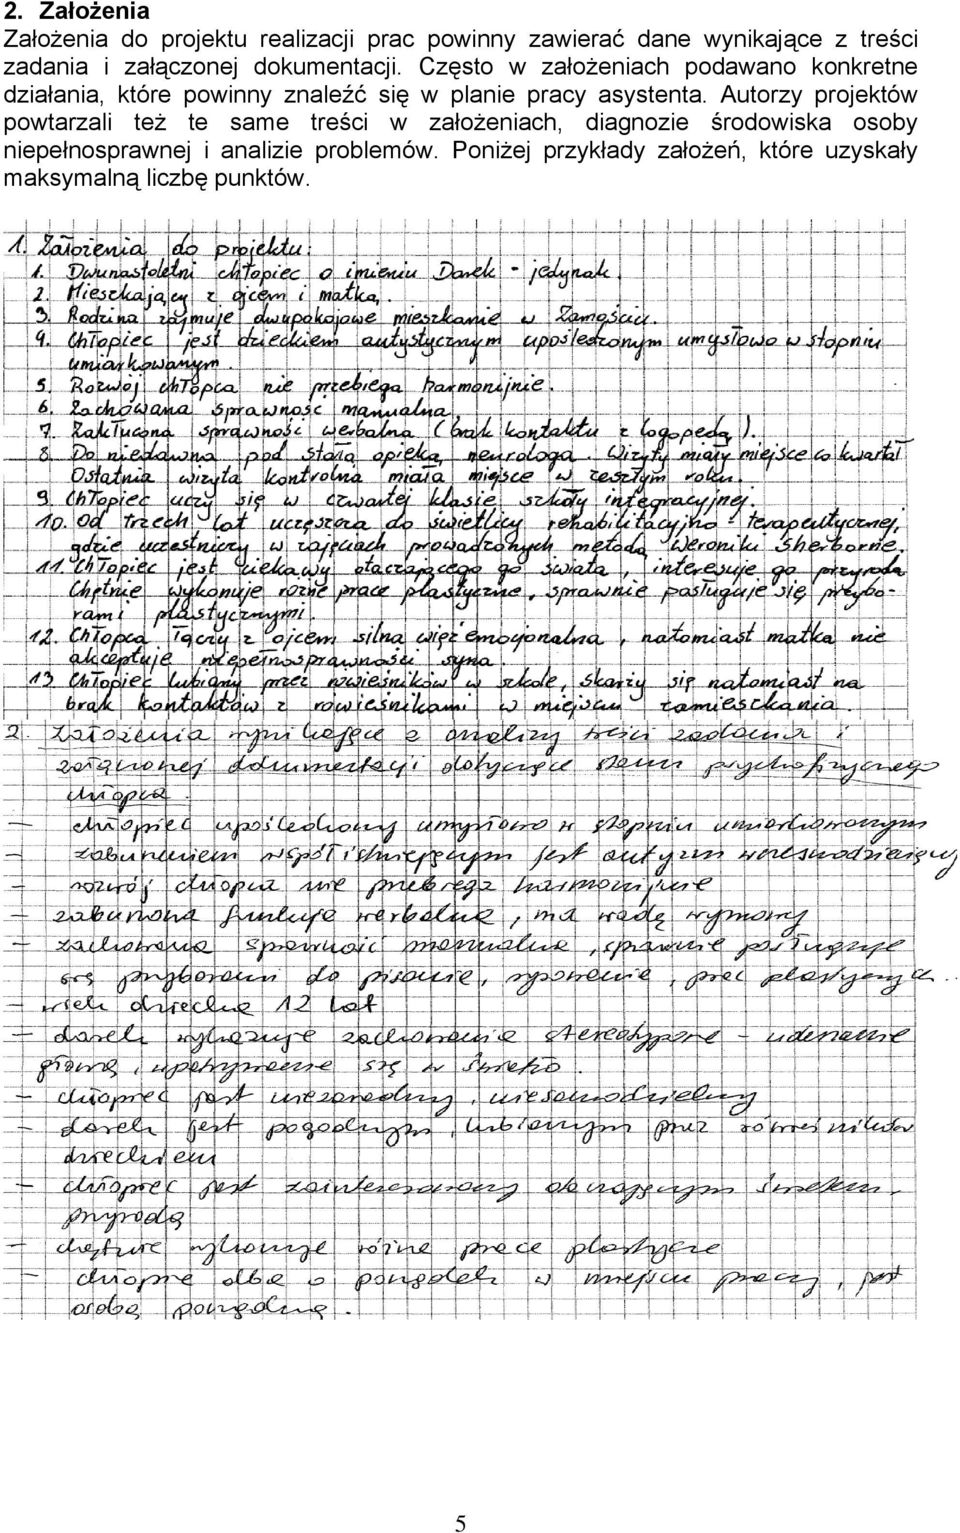 2. Założenia
Założenia do projektu realizacji prac powinny zawierać dane wynikające z treści
zadania i załączonej dokumentacji. Często w założeniach podawano konkretne
działania, które powinny znaleźć się w planie pracy asystenta. Autorzy projektów
powtarzali też te same treści w założeniach, diagnozie środowiska osoby
niepełnosprawnej i analizie problemów. Poniżej przykłady założeń, które uzyskały
maksymalną liczbę punktów.
1. Założenia do projektu:
1. Dwunastoletni chłopiec o imieniu Darek - jedynak.
2. Mieszkający z ojcem i matką.
3. Rodzina zajmuje dwupokojowe mieszkanie w Zamościu.
4. Chłopiec jest dzieckiem autystycznym upośledzonym umysłowo w stopniu
umiarkowanym.
5. Rozwój chłopca nie przebiega harmonijnie.
6. Zachowana sprawność manualna.
7. Zakłucona sprawność werbalna (brak kontaktu z logopedą).
8. Do niedawna pod stałą opieką neurologa. Wizyty miały miejsce co kwartał
Ostatnia wizyta kontrolna miała miejsce w zeszłym roku.
9. Chłopiec uczy się w czwartej klasie szkoły integracyjnej.
10. Od trzech lat uczęszcza do świetlicy rehabilitacyjno - terapeutycznej,
gdzie uczestniczy w zajęciach prowadzonych metodą Weroniki Sherborne.
11. Chłopiec jest ciekawy otaczającego go świata, interesuje go przyroda
Chętnie wykonuje różne prace plastyczne, sprawnie posługuje się przybo-
rami plastycznymi.
12. Chłopca łączy z ojcem silna więź emocjonalna, natomiast matka nie
akceptuje niepełnosprawności syna.
13 Chłopiec lubiany przez rówieśników w szkole, skarży się natomiast na
brak kontaktów z rówieśnikami w miejscu zamieszkania.
2. Założenia wynikające z analizy treści zadania i
załączonej dokumentacji dotyczące stanu psychofizycznego
chłopca.
– chłopiec upośledzony umysłowo w stopniu umiarkowanym
– zaburzeniem współistniejącym jest autyzm wczesnodziecięcy
– rozwój chłopca nie przebiega harmonijnie
– zaburzona funkcja werbalna, ma wadę wymowy
– zachowana sprawność manualna, sprawnie posługuje
się przyborami do pisania, rysowania, prac plastycznych.
– wiek dziecka 12 lat
– darek wykazuje zachowania stereotypowe – uderzanie
głową, wpatrywanie się w światło.
– chłopiec jest niezaradny, niesamodzielny
– darek jest pogodnym, lubianym przez rówieśników
dzieckiem
– chłopiec jest zainteresowany otaczającym światem,
przyrodą
– chętnie wykonuje różne prace plastyczne
– chłopiec dba o porządek w miejscu pracy, jest
osobą porządną.
5